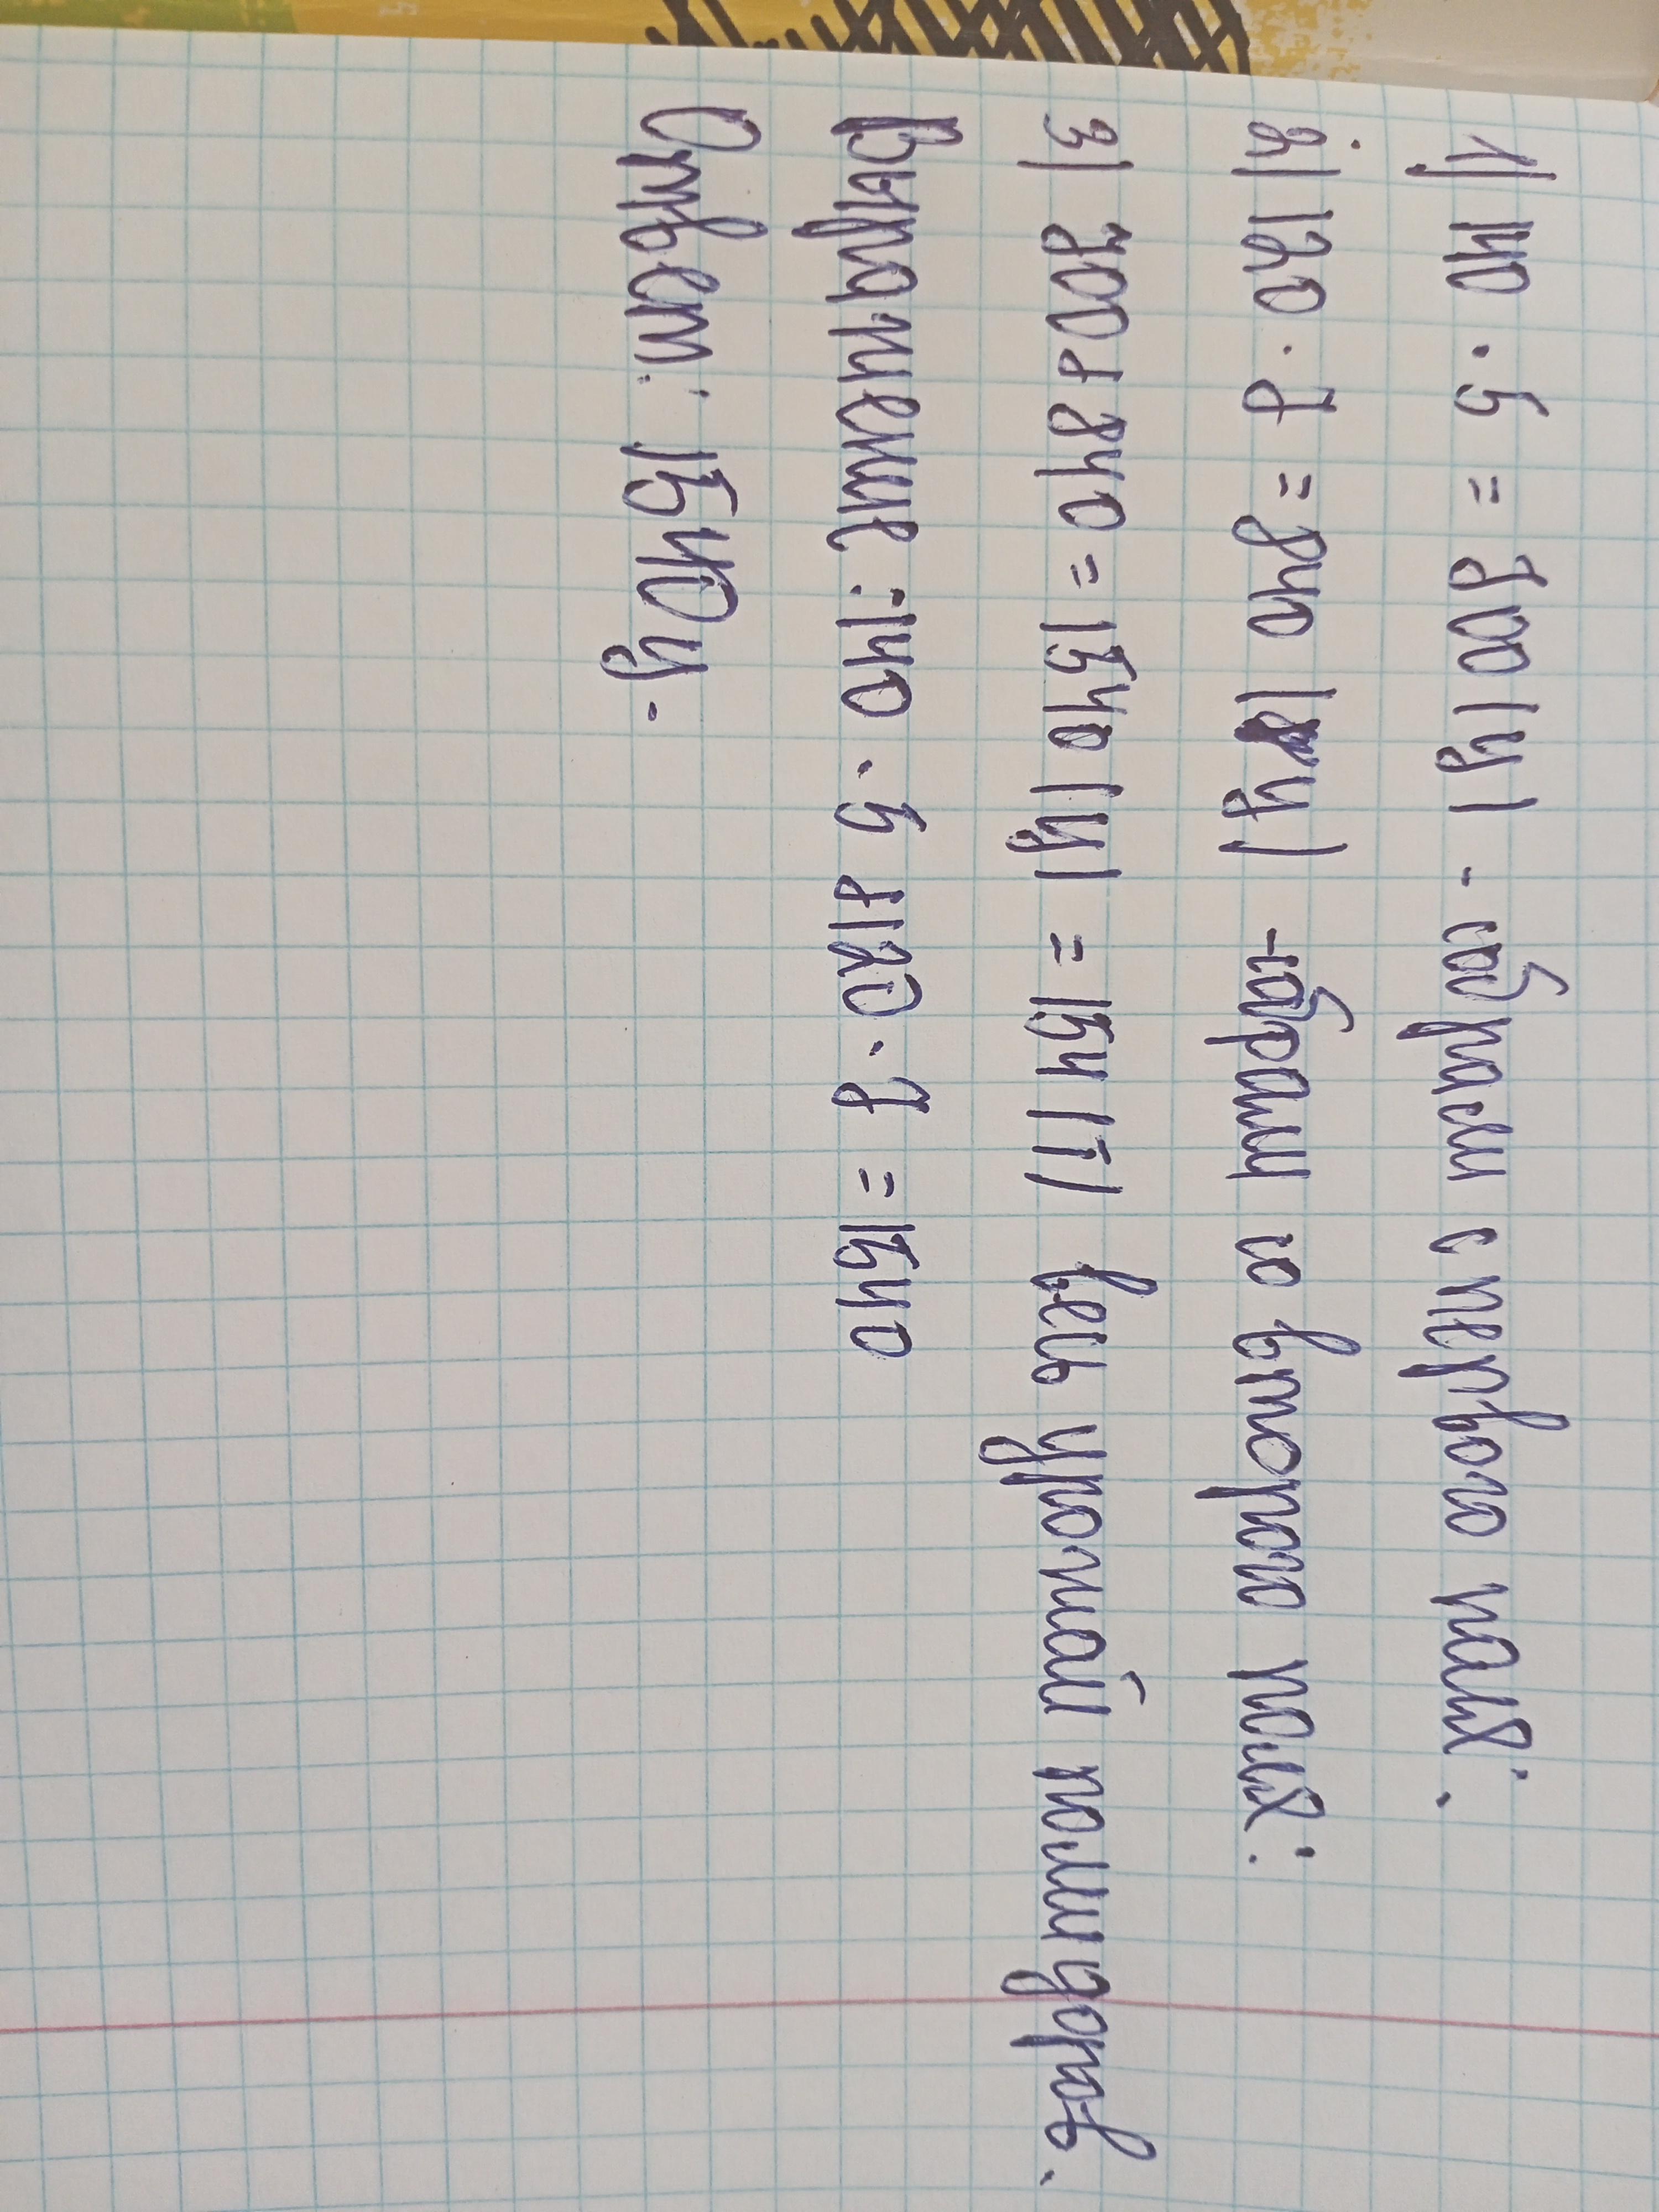 1) 140 · 5 = 700 (ц) - собрали с первого поля.
2) 120 · 7 = 840 (ц) - собрали со второго поля.
3) 700 + 840 = 1540 (ц) = 154 (т) весь урожай помидоров.
Выражение: 140 · 5 + 120 · 7 = 1540
Ответ: 1540ц.